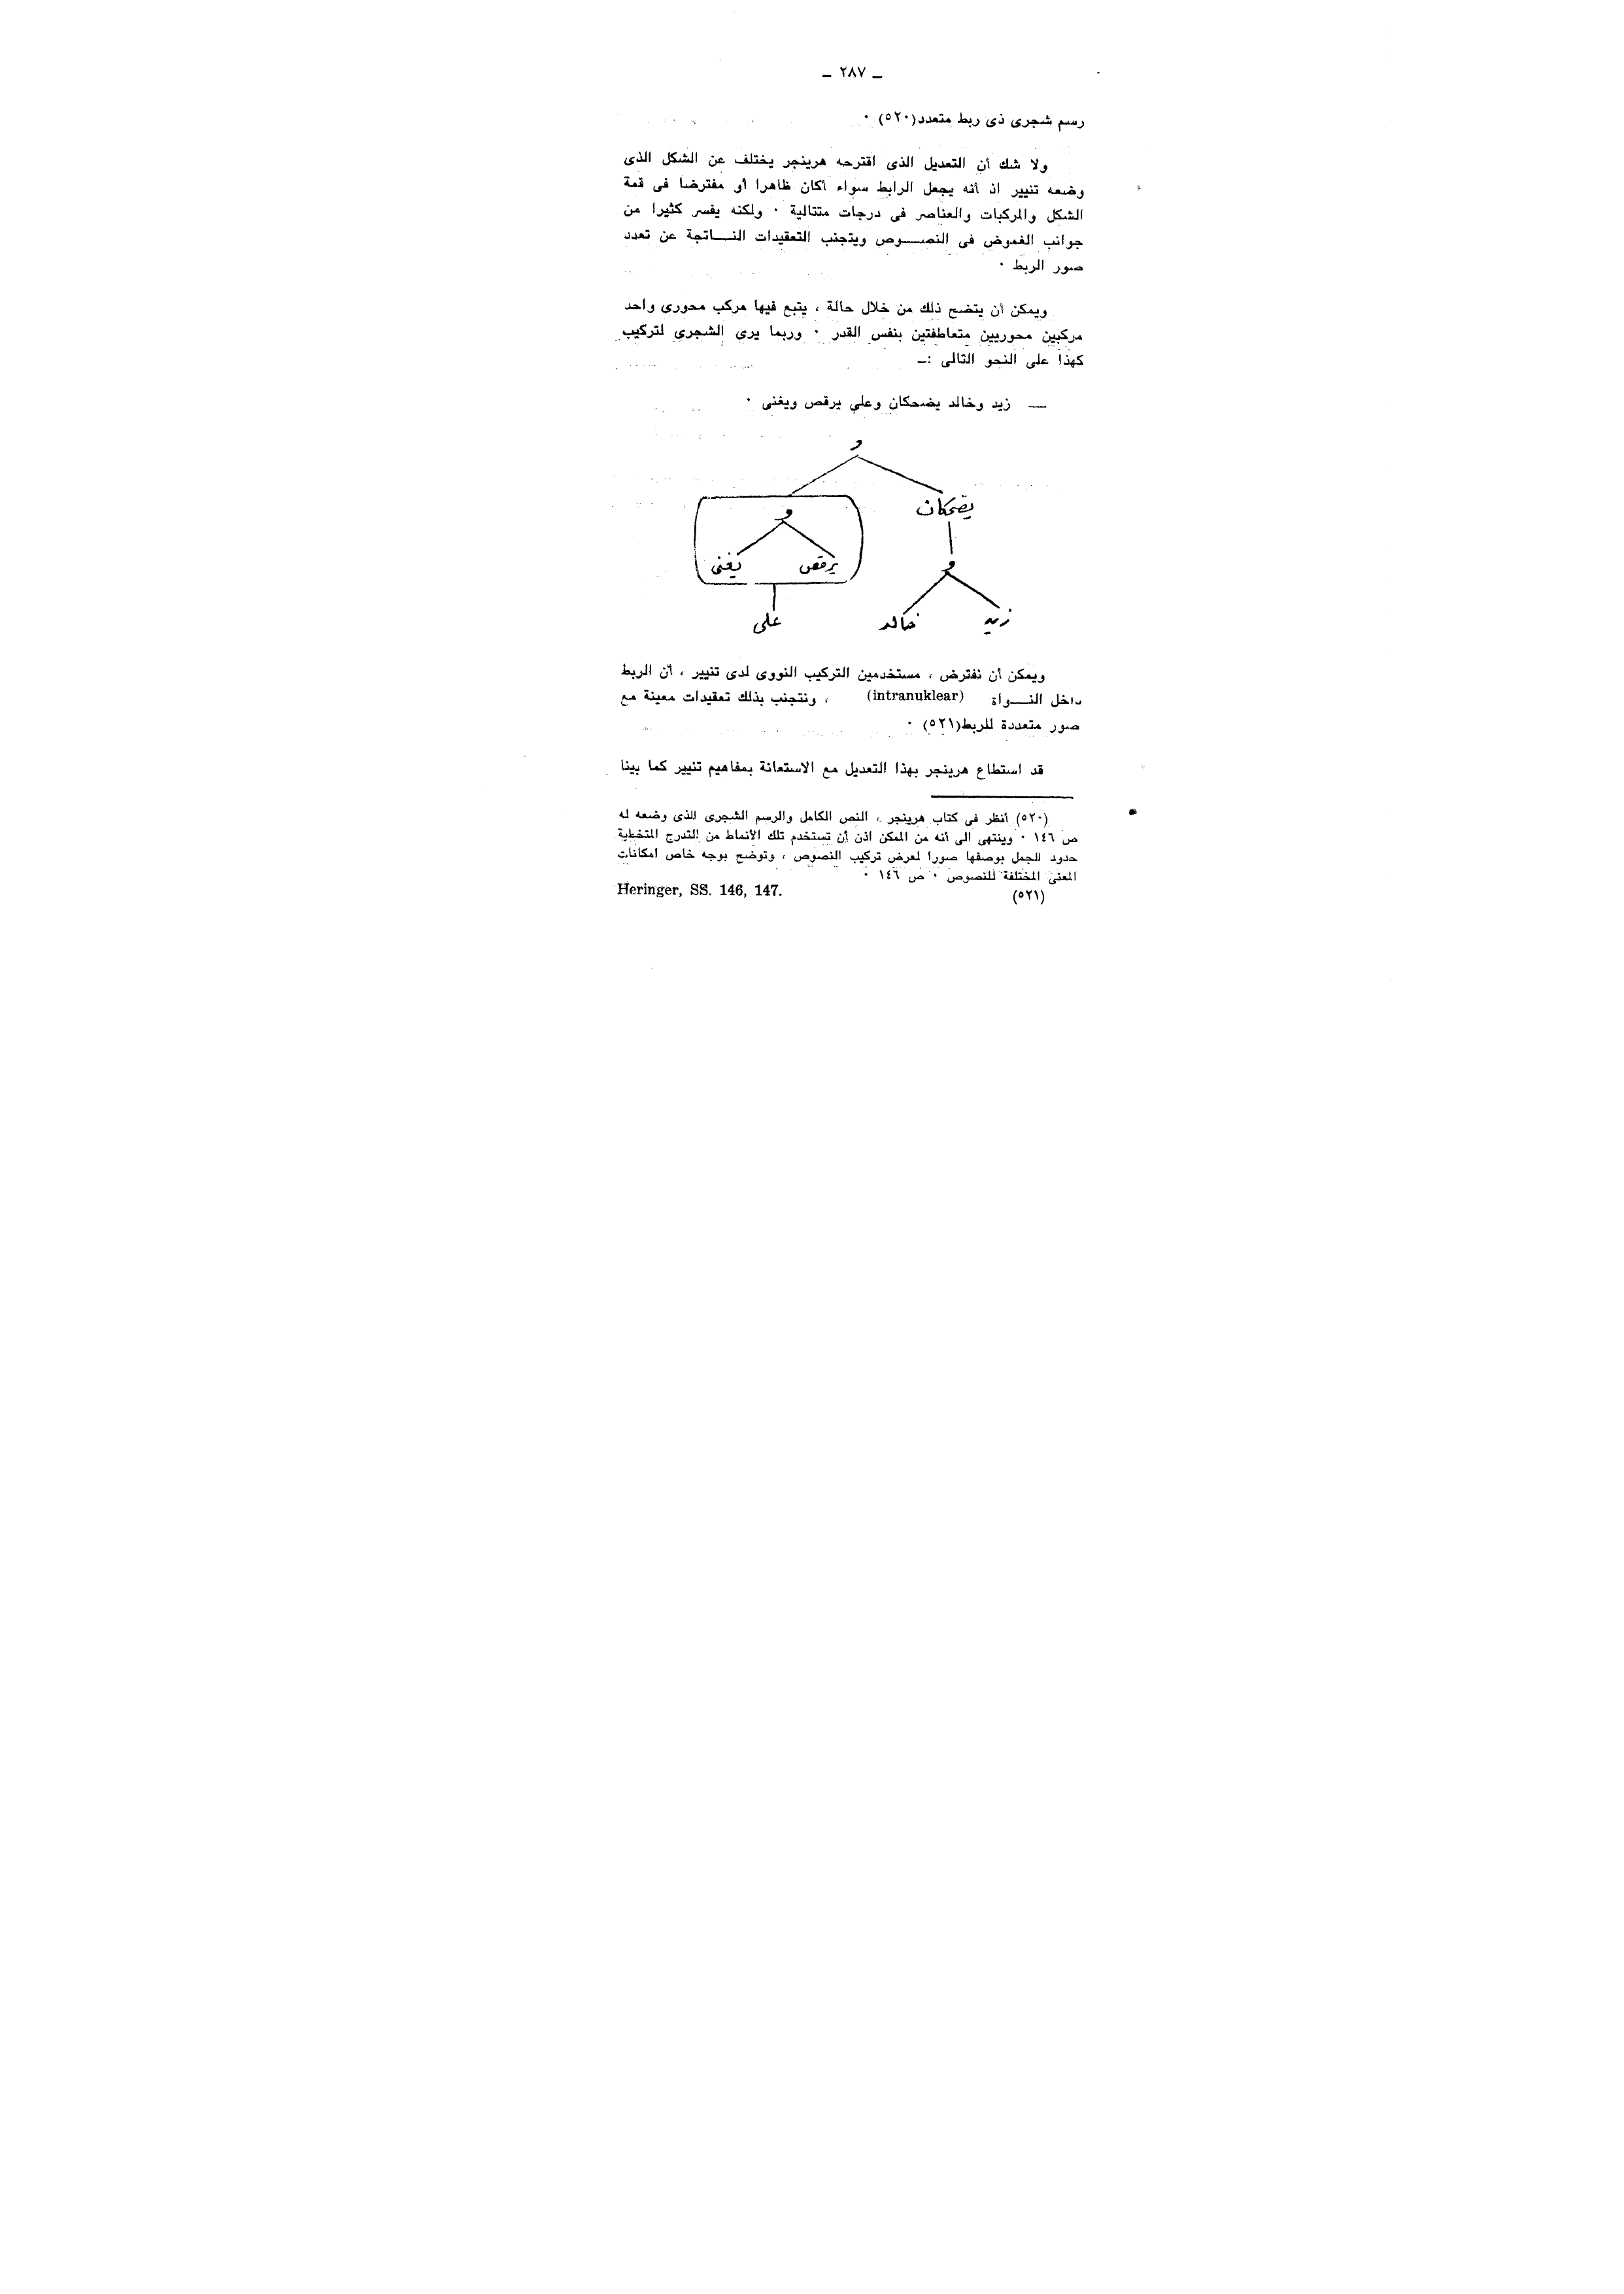 ـ ٢٨٧ ـ
رسم شجرى ذى ربط متعدد(٥٢٠) ٠
ولا شك أن التعديل الذى اقترحه هرينجر يختلف عن الشكل الذى
وضعه تنيير اذ أنه يجعل الرابط سواء أكان ظاهرا أو مفترضا فى قمة
الشكل والمركبات والعناصر فى درجات متتالية ٠ ولكنه يفسر كثيرا من
جوانب الغموض فى النصـــوص ويتجنب التعقيدات النـــاتجة عن تعدد
صور الربط ٠
ويمكن أن يتضح ذلك من خلال حالة ، يتبع فيها مركب محورى واحد
مركبين محوريين متعاطفتين بنفس القدر ٠ وربما يرى الشجرى لتركيب
كهذا على النحو التالى :ـ
ـــ زيد وخالد يضحكان وعلي يرقص ويغنى ٠
و
يضحكان
و
يرقص يغنى
و
زيد خالد
على
ويمكن أن نفترض ، مستخدمين التركيب النووى لدى تنيير ، أن الربط
داخل النـــواة (intranuklear) ، ونتجنب بذلك تعقيدات معينة مع
صور متعددة للربط(٥٢١) ٠
قد استطاع هرينجر بهذا التعديل مع الاستعانة بمفاهيم تنيير كما بينا
(٥٢٠) أنظر فى كتاب هرينجر ، النص الكامل والرسم الشجرى للذى وضعه له
ص ١٤٦ ٠ وينتهى الى أنه من الممكن اذن أن تستخدم تلك الأنماط من التدرج المتخطية
حدود الجمل بوصفها صورا لعرض تركيب النصوص ، وتوضح بوجه خاص امكانات
المعنى المختلفة للنصوص ٠ ص ١٤٦ ٠
(٥٢١) Heringer, SS. 146, 147.